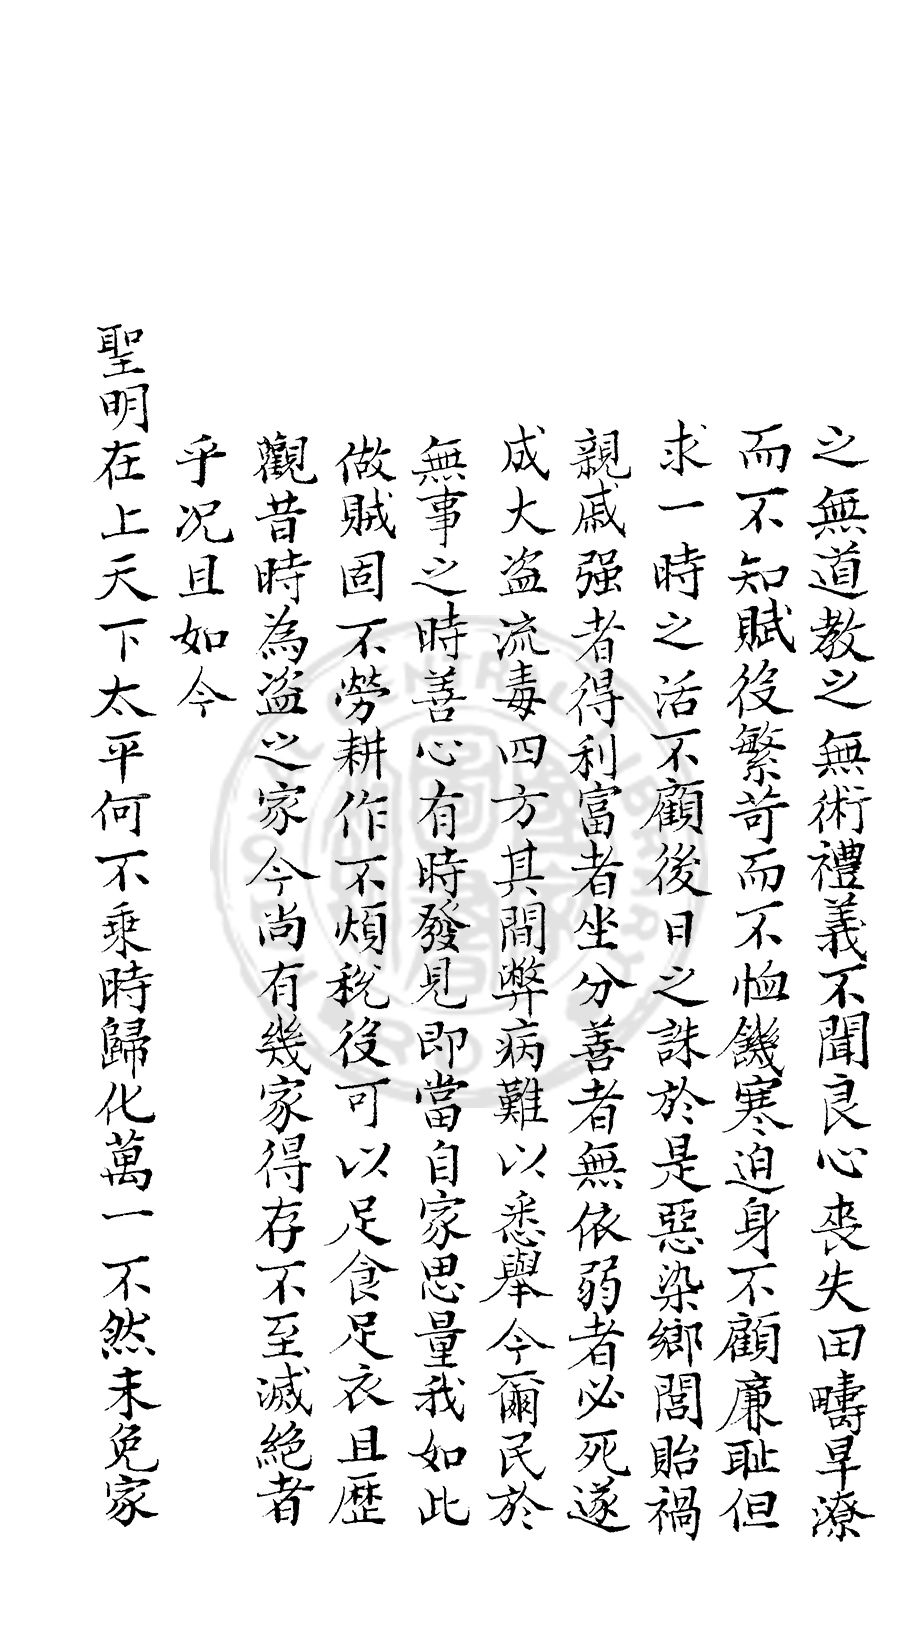 之無道教之無術禮義不聞良心喪失田疇旱潦
而不知賦役繁苛而不恤饑寒迫身不顧廉耻但
求一時之活不顧後日之誅於是惡染鄉閭貽禍
親戚强者得利富者坐分善者無依弱者必死遂
成大盗流毒四方其間弊病難以悉舉今爾民於
無事之時善心有時發見即當自家思量我如此
做賊固不勞耕作不煩稅役可以足食足衣且歷
觀昔時為盗之家今尚有幾家得存不至滅絕者
乎况且如今
聖明在上天下太平何不乘時歸化萬一不然未免家